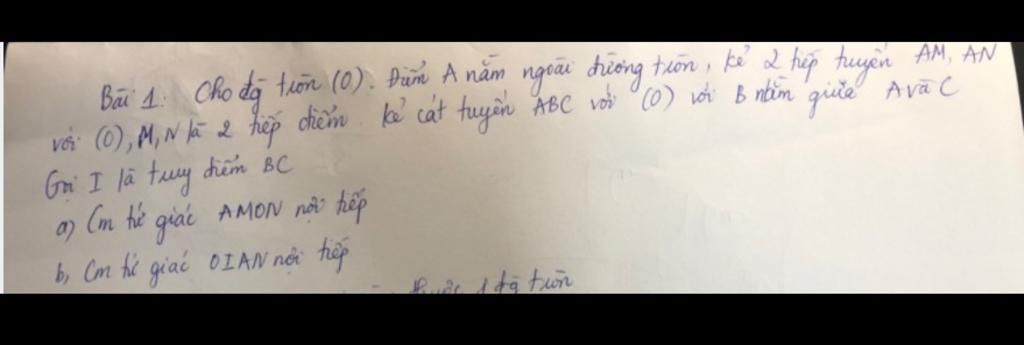 Bài 1: Cho đg tròn (O). Điểm A nằm ngoài đường tròn, kẻ 2 tiếp tuyến AM, AN
với (O), M, N là 2 tiếp điểm. kẻ cát tuyến ABC với (O) với B nằm giữa A và C
Gọi I là trung điểm BC
a) Cm tứ giác AMON nội tiếp
b, Cm tứ giác OIAN nội tiếp
thuộc 1 đg tròn